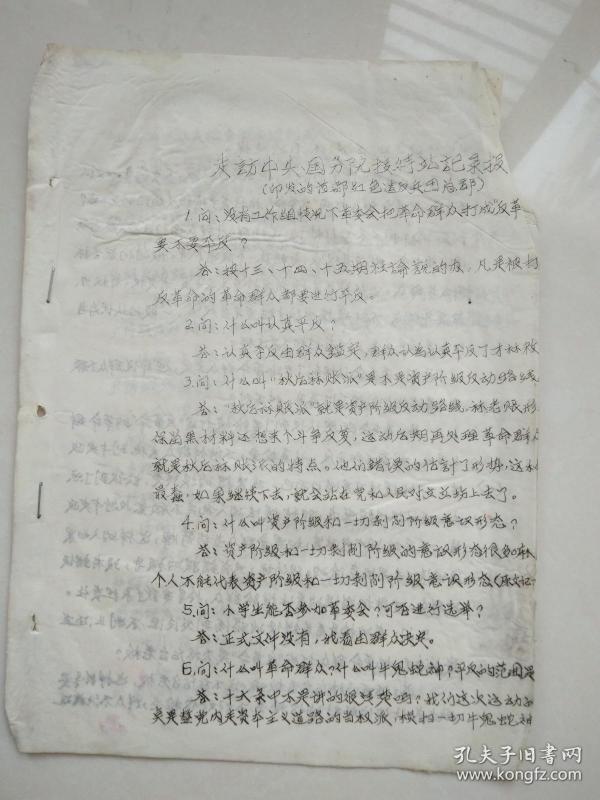 中央国务院接待站记录报
1.问：没有工作组情况下革委会把革命群众打成"反革
要不要平反？
答：按十三、十四、十五期社论说的办，凡是被打
反革命的革命群众都要进行平反。
2.问：什么叫认真平反？
答：认真平反由群众鉴定，群众认为认真平反了才
3.问：什么叫"秋后算账派"是不是资产阶级反动路线
答："秋后算账派"就是资产阶级反动路线，算老账
保留黑材料还想来个斗争反复，运动后期再处理革命群众
就是秋后算账派的特点。他们错误的估计了形势，这
最蠢，如果继续下去，就会站在党和人民对立立场上去了。
4.问：什么叫资产阶级和一切剥削阶级意识形态？
答：资产阶级和一切剥削阶级的意识形态很多
个人不能代表资产阶级和一切剥削阶级意识形态
5.问：小学生能否参加革委会？可否进行选举？
答：正式文件没有，我看由群众决定。
6.问：什么叫革命群众？什么叫牛鬼蛇神？平反的范围是
答：十六条中不是讲的很清楚吗？我们这次运动
是整党内走资本主义道路的当权派，横扫一切牛鬼蛇神
孔夫子旧书网
www.kongfz.com